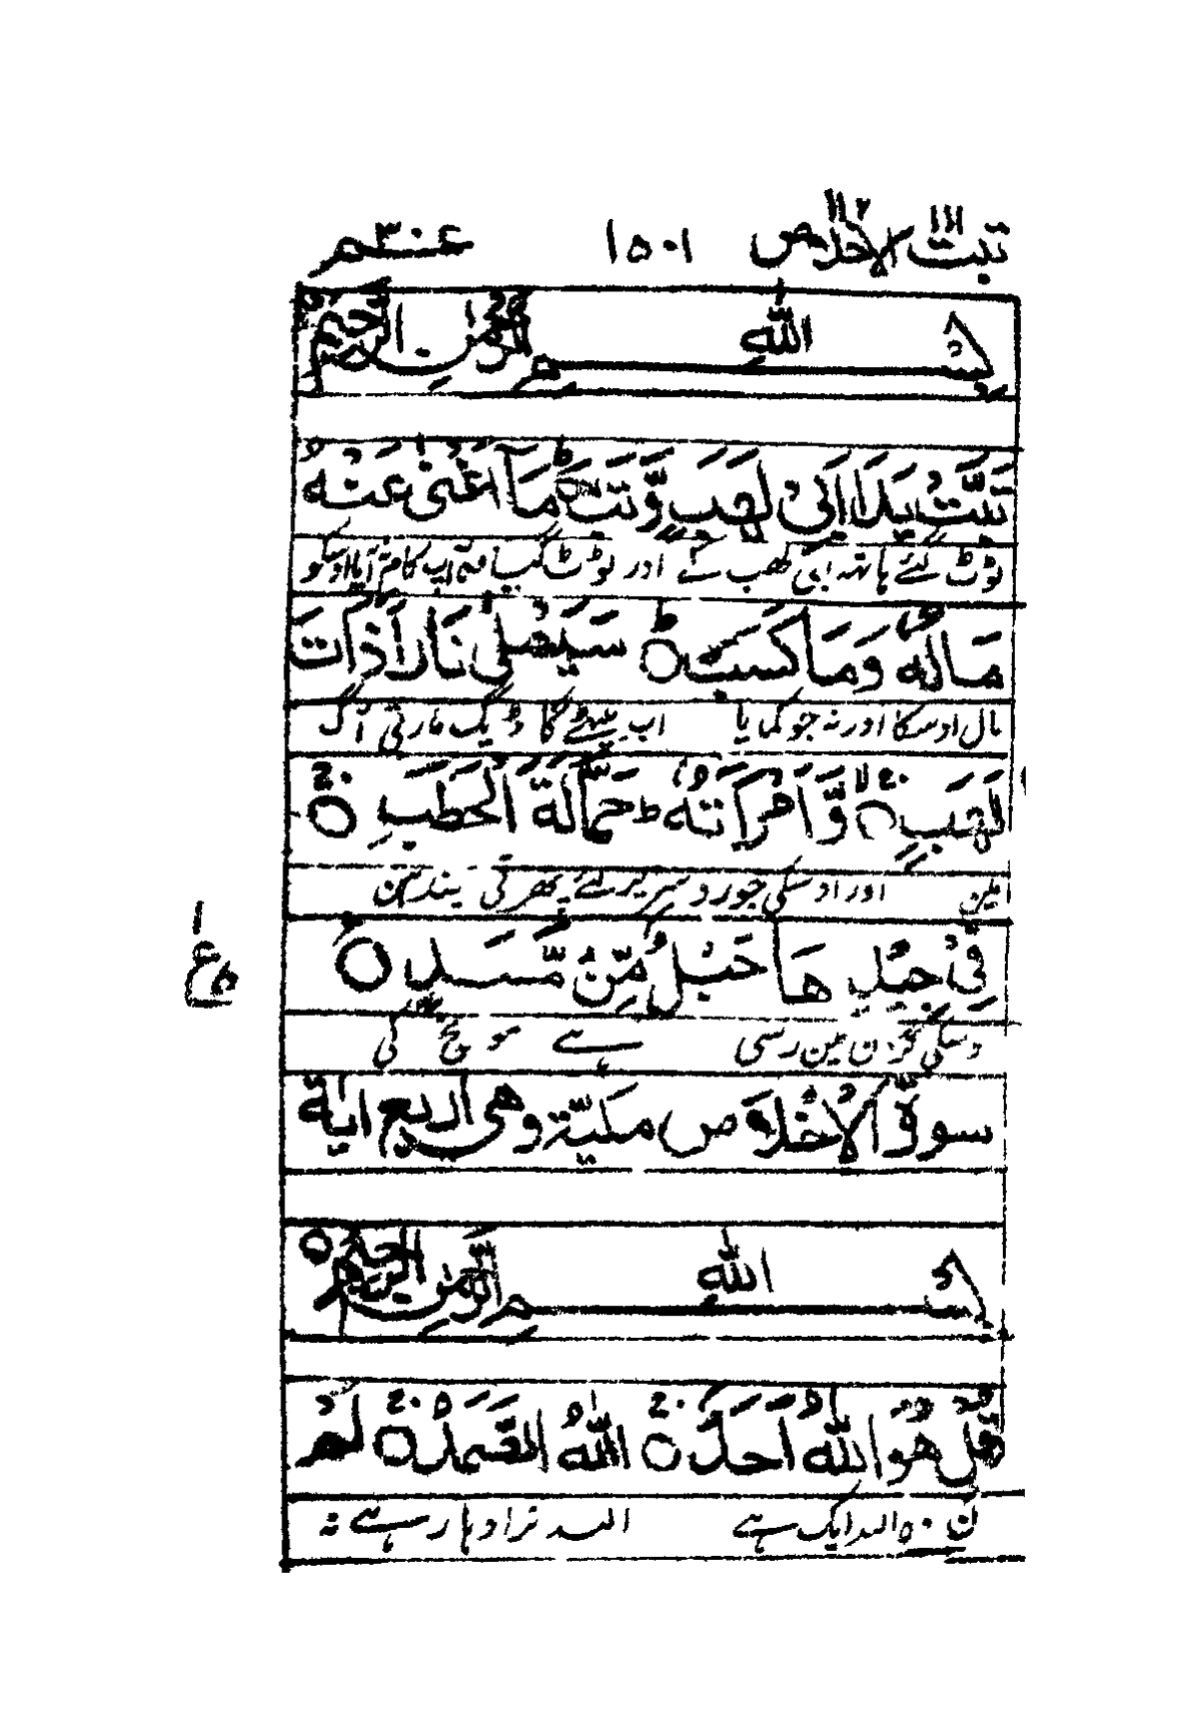 تبت ۱۱۱ الاخلاص ۱۱۲ ۱۵۰۱ عم ۳۰
بِسْمِ اللهِ الرَّحْمٰنِ الرَّحِيْمِ
تَبَّتْ يَدَآ اَبِيْ لَهَبٍ وَّتَبَّ ۝ؕ مَآ اَغْنٰى عَنْهُ
ٹوٹ گئے ہاتھ ابی لھب کے اور ٹوٹ گیا وہ آپ کام نہ آیا اوسکو
مَالُهٗ وَمَا كَسَبَ ۝ؕ سَيَصْلٰى نَارًا ذَاتَ
مال اوسکا اور نہ جو کمایا اب پیٹھے گا ڈیگ مارتی آگ
لَهَبٍ ۝ وَّامْرَاَتُهٗ ؕ حَمَّالَةَ الْحَطَبِ ۝
مین اور اوسکی جورو سر پر لئے پھرتی ایندھن
فِيْ جِيْدِهَا حَبْلٌ مِّنْ مَّسَدٍ ۝
اوسکی گردن مین رسی ہے مونج کی
سورة الْاِخْلَاص مكيّة وهى اربع اٰياة
بِسْمِ اللهِ الرَّحْمٰنِ الرَّحِيْمِ ۝
قُلْ هُوَ اللهُ اَحَدٌ ۝ اَللهُ الصَّمَدُ ۝ لَمْ
اللہ ایک ہے اللہ نرادہار ہے نہ